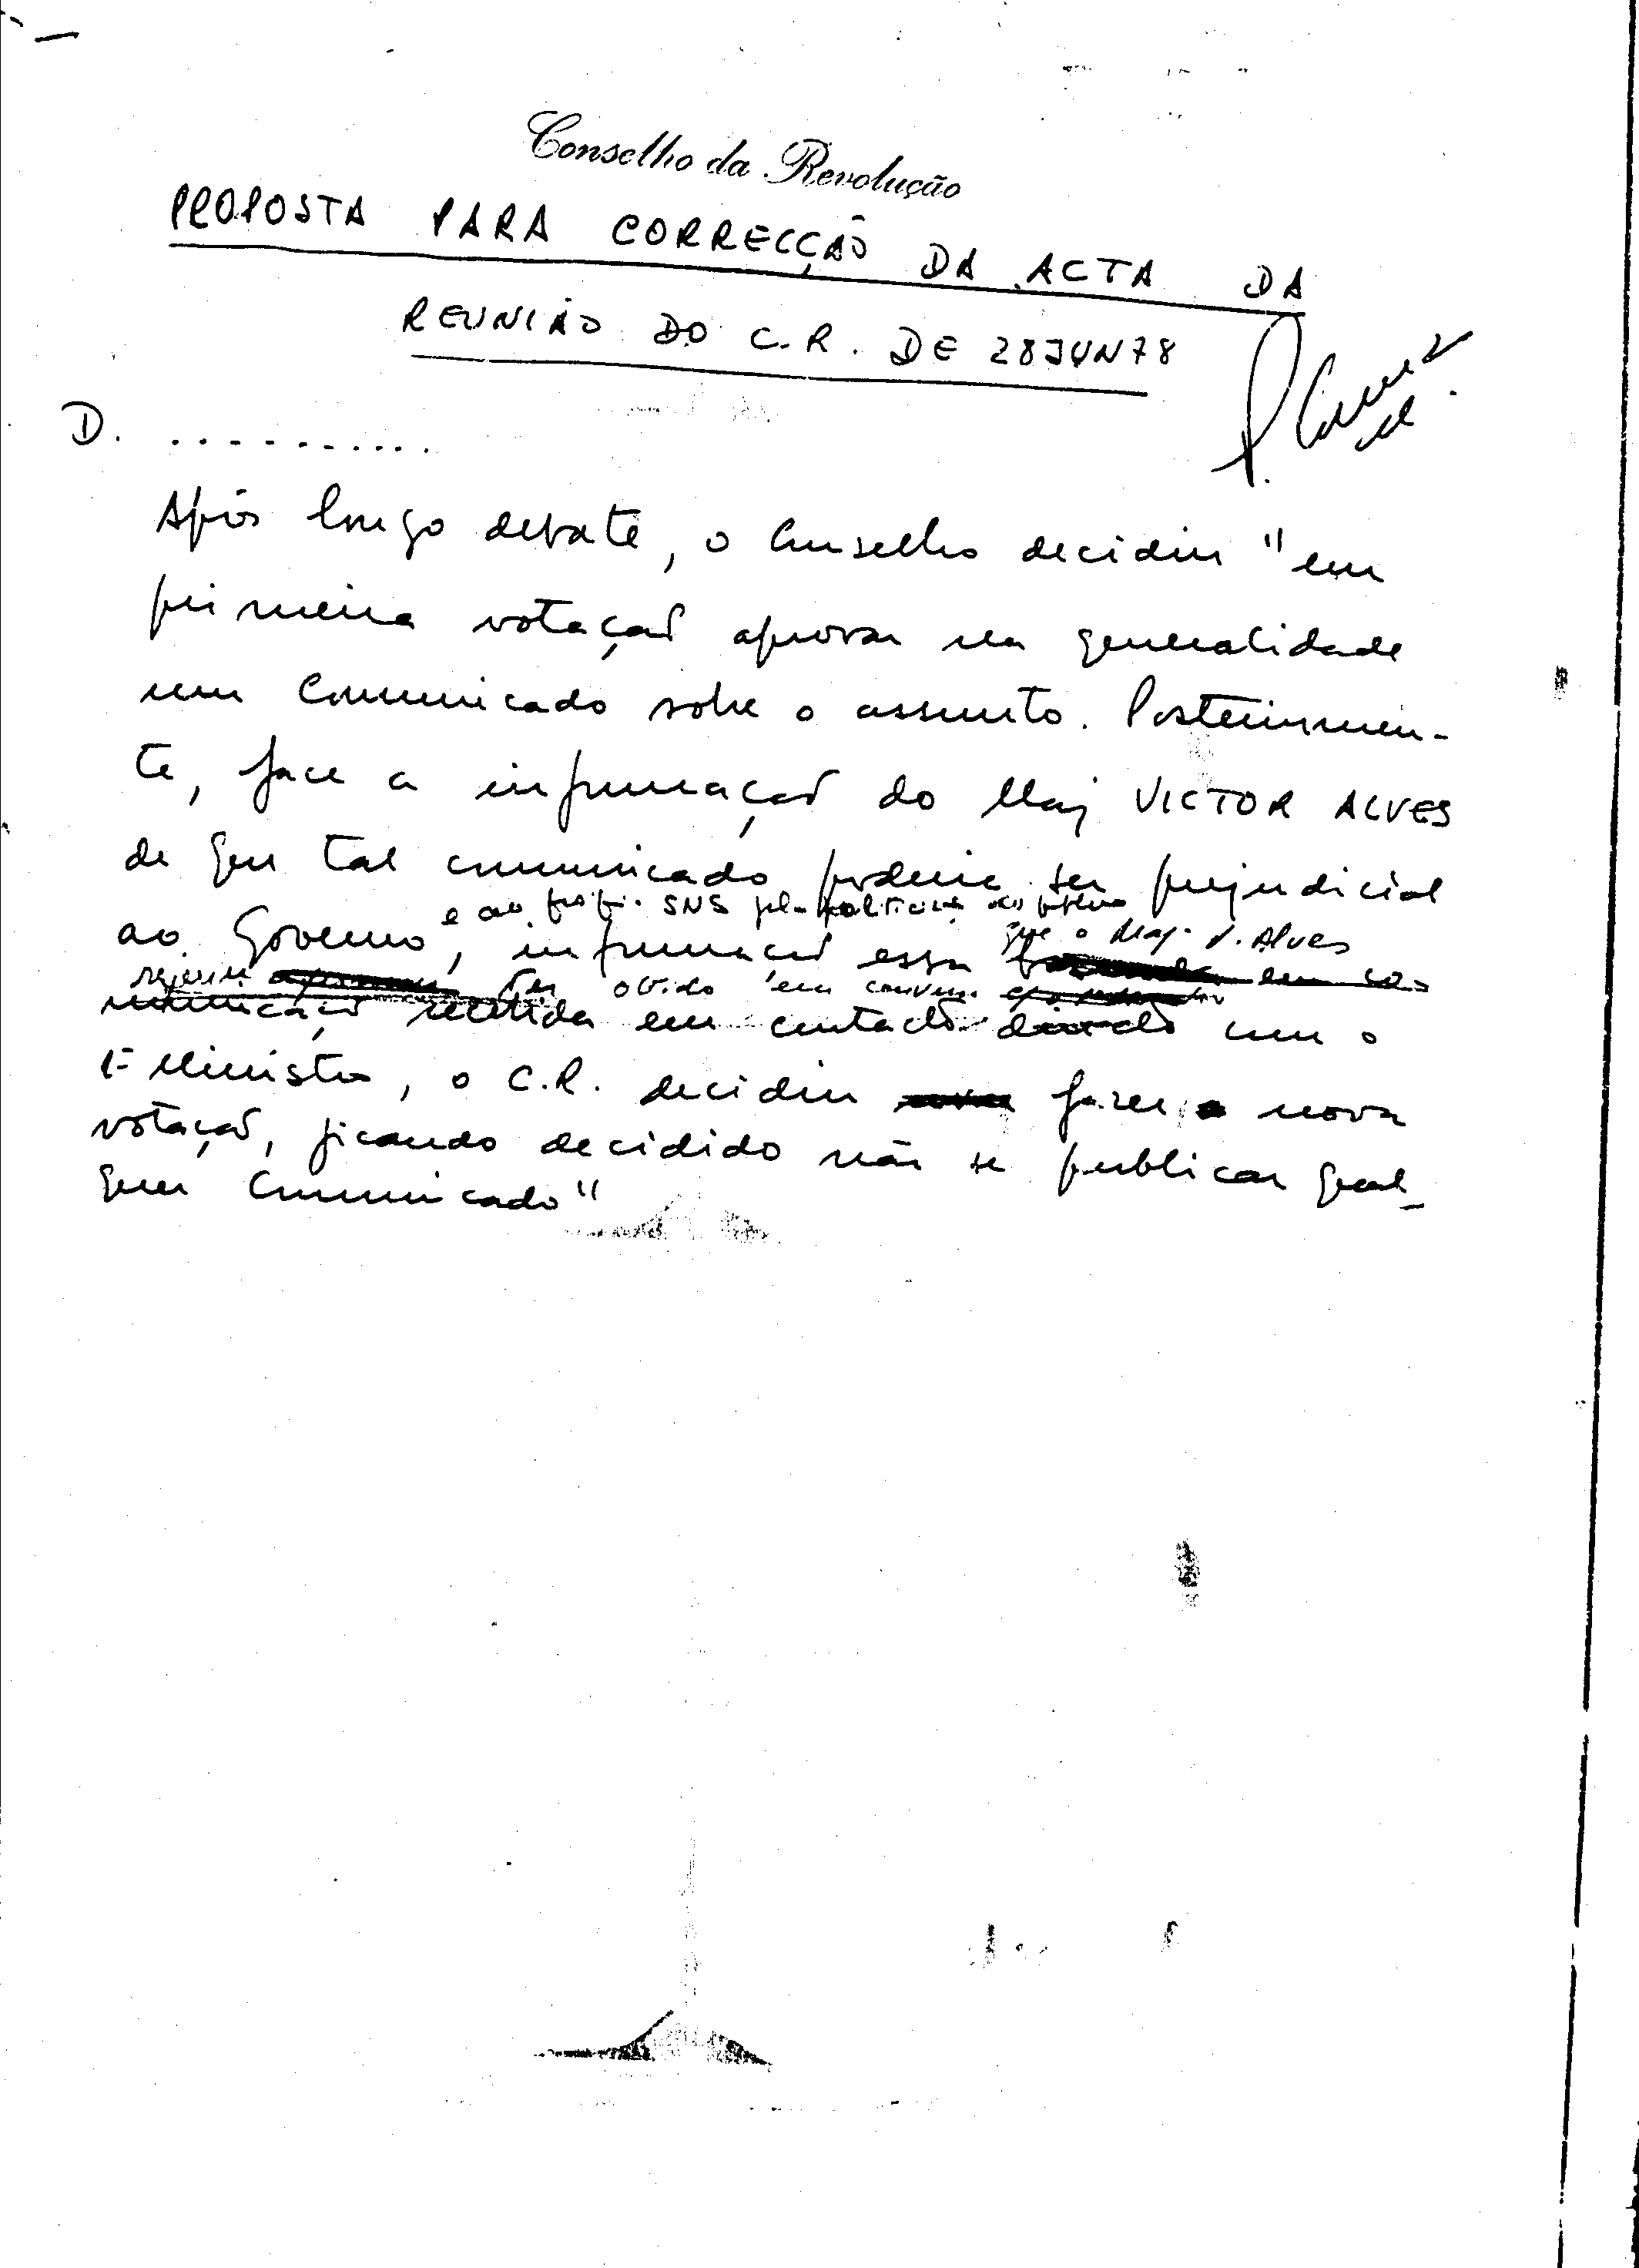 Conselho da Revolução
PROPOSTA PARA CORRECÇÃO DA ACTA DA
REUNIÃO DO C.R. DE 28JUN78
D. ..........
Após longo debate, o Conselho decidiu "em
primeira votação aprovar na generalidade
um Comunicado sobre o assunto. Posteriormen-
te, face a informação do Maj VICTOR ALVES
de que tal comunicado poderia ser prejudicial
e ao próprio SNS pela
ao Governo, informação essa
que o Maj. V. Alves
referiu ter obtido em
municação recebida em contacto directo com o
1º Ministro, o C.R. decidiu fazer nova
votação, ficando decidido não se publicar qual-
quer Comunicado"